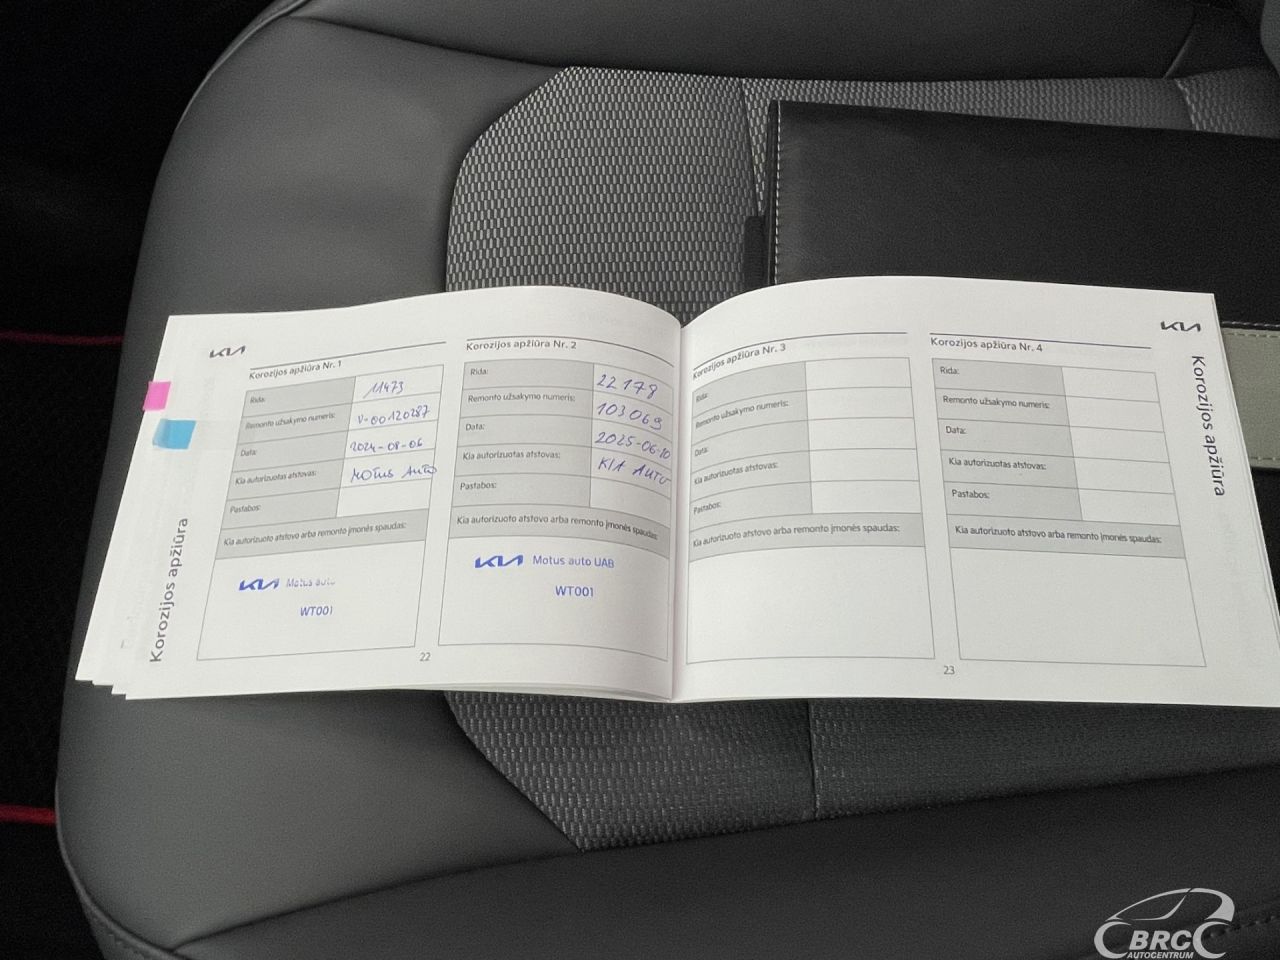 KIA
Korozijos apžiūra Nr. 1
Rida: 11473
Remonto užsakymo numeris: V-00120287
Data: 2024-08-06
Kia autorizuotas atstovas: MOTUS AUTO
Pastabos:
Kia autorizuoto atstovo arba remonto įmonės spaudas:
KIA Motus auto
WT001
Korozijos apžiūra
Korozijos apžiūra Nr. 2
Rida: 22178
Remonto užsakymo numeris: 103069
Data: 2025-06-10
Kia autorizuotas atstovas: KIA AUTO
Pastabos:
Kia autorizuoto atstovo arba remonto įmonės spaudas:
KIA Motus auto UAB
WT001
22
Korozijos apžiūra Nr. 3
Rida:
Remonto užsakymo numeris:
Data:
Kia autorizuotas atstovas:
Pastabos:
Kia autorizuoto atstovo arba remonto įmonės spaudas:
Korozijos apžiūra Nr. 4
Rida:
Remonto užsakymo numeris:
Data:
Kia autorizuotas atstovas:
Pastabos:
Kia autorizuoto atstovo arba remonto įmonės spaudas:
23
KIA
Korozijos apžiūra
BRC
AUTOCENTRUM